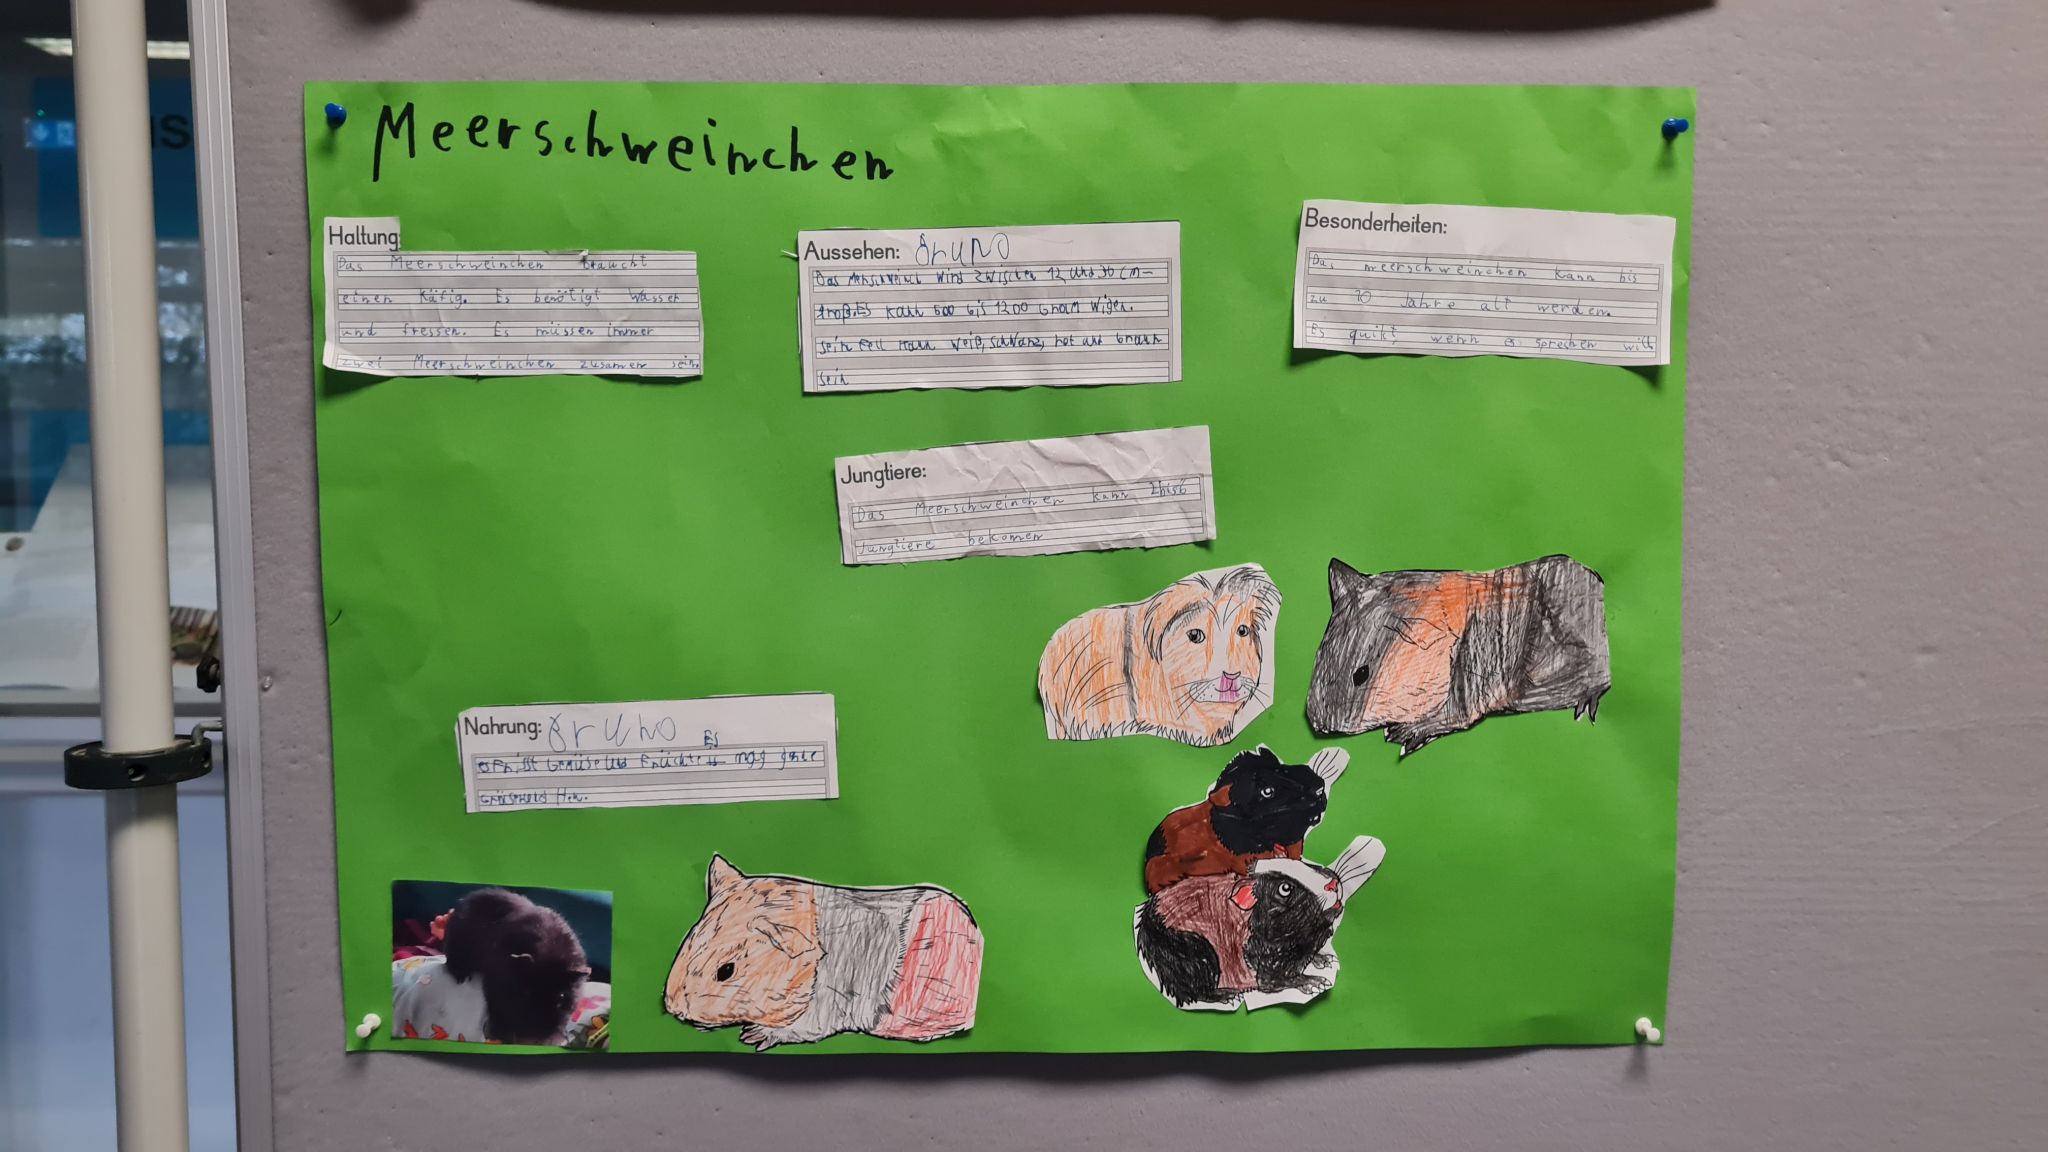 Meerschweinchen
Haltung:
Das Meerschweinchen braucht
einen Käfig. Es benötigt Wasser
und fressen. Es müssen immer
zwei Meerschweinchen zusamen sein
Aussehen: Bruno
Das wird zwischen 12 und 36 cm
groß. Es kann 600 bis 1200 Gram wigen.
sein Fell kann weiß, schwarz, rot und braun
sein
Besonderheiten:
Das meerschweinchen kann bis
zu 10 Jahre alt werden.
Es quikt, wenn es sprechen will
Jungtiere:
Das Meerschweinchen kann 2bis6
Jungtiere bekomen
Nahrung: Bruno
Es
Frisst Gemüse und Früchte mag gerne
und Heu.